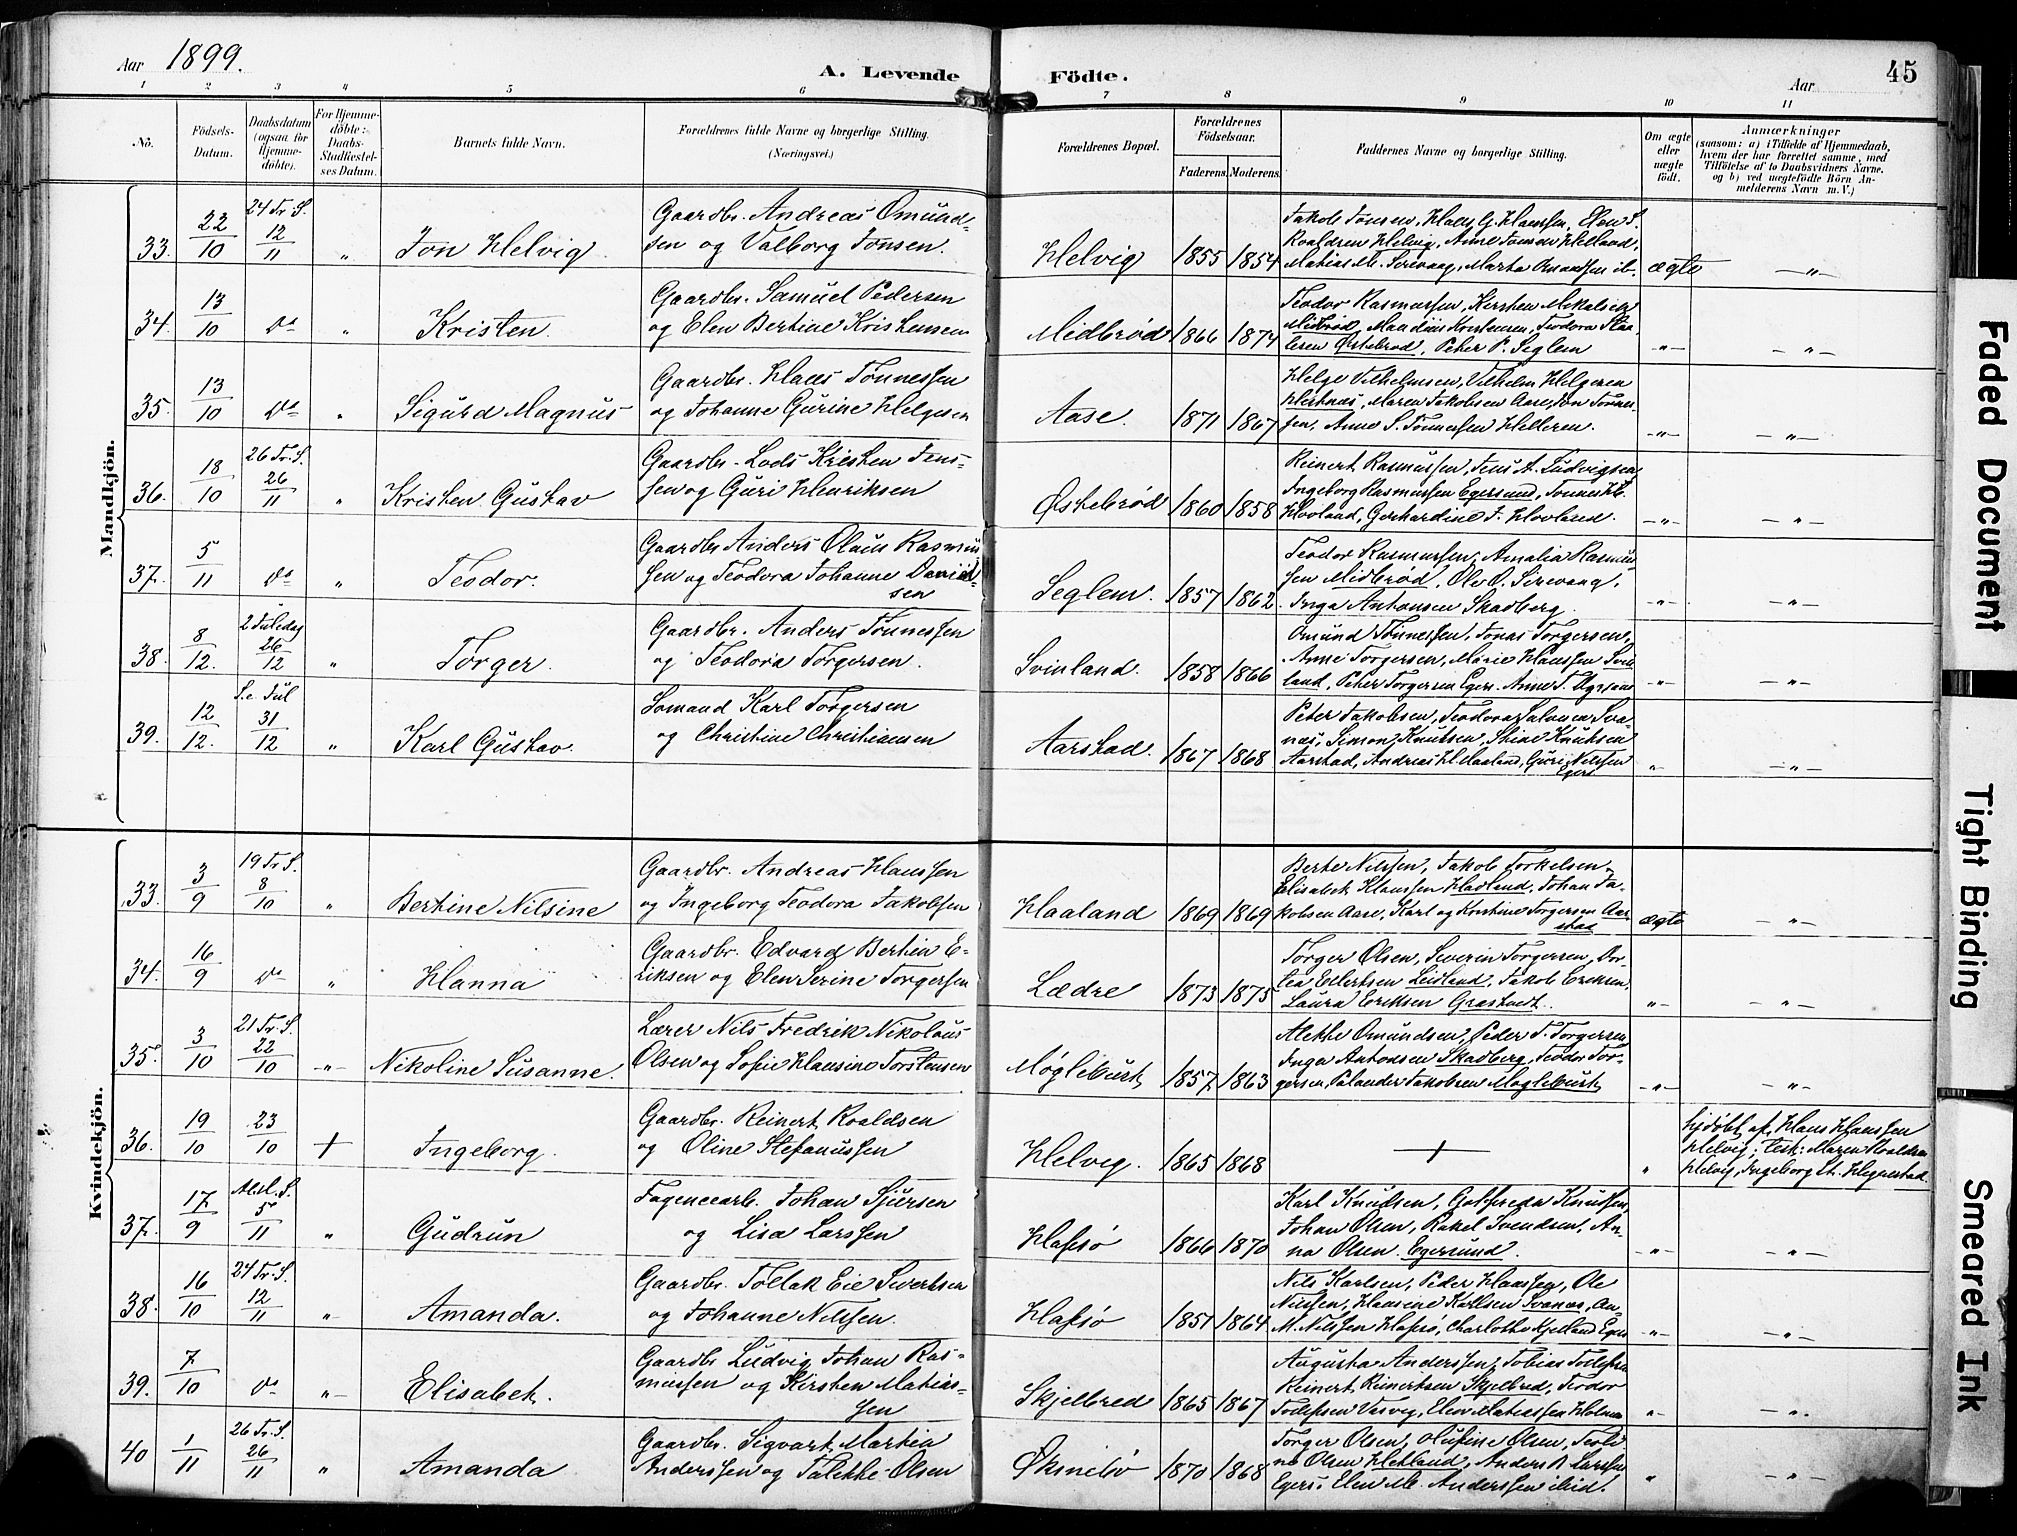 Aar 1899.
A. Levende Födte.
Aar
45
1 2 3 4 5 6 7 8 9 10 11
No.
Födsels-Datum.
Daabsdatum (ogsaa for Hjemme-döbte).
For Hjemme-döbte: Daabs-Stadfæstel-ses Datum.
Barnets fulde Navn.
Forældrenes fulde Navne og borgerlige Stilling.
(Næringsvei.)
Forældrenes Bopæl.
Forældrenes Födselsaar.
Faderens. Moderens.
Faddernes Navne og borgerlige Stilling.
Om ægte eller uægte födt.
Anmærkninger
(saasom: a) i Tilfælde af Hjemmedaab,
hvem der har forrettet samme, med
Tilföielse af to Daabsvidners Navne.
og b) ved uægtefödte Börn An-
melderens Navn m. V.)
Mandkjön.
33. 22/10 24 Tr. S. 12/11 " Jon Helvig Gaardbr. Andreas Omund-
sen og Valborg Jonsen. Helvig 1855 1854 Jakob Jonsen, Klaus G. Klaussen, Elen S.
Roaldsen Helvig, Anne Jonsen Helland,
Matias M. Sirevaag, Marta Omundsen ib. ægte — " —
34. 13/10 Do " Kristen Gaardbr. Samuel Pedersen
og Elen Bertine Kristensen Midbrød 1866 1874 Teodor Rasmussen, Kirsten Mikalsen
Midbrød, Kristensen, Teodora
Østebrød, Peter P. Seglem — " — — " —
35. 13/10 Do " Sigurd Magnus Gaardbr. Klaus Tønnessen
og Johanne Gurine Helgesen Aase. 1871 1867 Helge Vilhelmsen, Vilhelm Helgesen
Hestnæs, Maren Jakobsen Aase, Jon Tønnes-
sen, Anne S. Tønnessen Helleren. — " — — " —
36. 18/10 26 Tr. S. 26/11 " Kristen Gustav Gaardbr. Lods Kristen Jens-
sen og Guri Henriksen Østebrød 1860 1858 Reinert Rasmussen, Jens A. Ludvigsen
Ingeborg Rasmussen Egersund, Tønnes H.
Hovland, Gerhardine J. Hovland. — " — — " —
37. 5/11 Do " Teodor. Gaardbr Anders Olaus Rasmus-
sen og Teodora Johanne Daniel-
sen Seglem. 1857 1862 Teodor Rasmussen, Amalia Rasmus-
sen Midbrød, Ole O. Sirevaag,
Inga Antonsen Skadberg. — " — — " —
38. 8/12. 2 Juledag 26/12 " Torger. Gaardbr. Anders Tønnessen
og Teodora Torgersen. Svinland. 1858 1866 Omund Tønnessen, Jonas Torgersen,
Anne Torgersen, Marie Klaussen Svin-
land, Peter Torgersen Egers. Anne T. — " — — " —
39. 12/12. S. e. Jul 31/12 " Karl Gustav Sømand Karl Torgersen
og Christine Christiansen Aarstad. 1867 1868 Peter Jakobsen, Teodora Salvesen Sva-
næs, Simon Knutsen, Stine Knutsen
Aarstad, Andreas H. Haaland, Guri Nilssen
Egers " — " —
Kvindekjön.
33. 3/9 19 Tr. S. 8/10 " Bertine Nilsine Gaardbr. Andreas Klaussen
og Ingeborg Teodora Jakobsen Haaland 1869 1869 Berte Nilssen, Jakob Torkelsen
Elisabet Klaussen Haaland, Johan Ja-
kobsen Aase, Karl og Kristine Torgersen Aar-
stad ægte — " —
34. 16/9 Do " Hanna Gaardbr. Edvard Bertin E-
riksen og Elen Serine Torgersen Lædre 1873 1875 Torger Olsen, Severin Torgersen, Dor-
tea Eilertsen Leidland, Jakob Eriksen,
Laura Eriksen Gråstvedt. " — " —
35. 3/10 21 Tr. S. 22/10 — " — Nikoline Susanne. Lærer Nils Fredrik Nikolaus
Olsen og Sofie Klausine Torstensen Møgleburt 1857 1863 Alette Omundsen, Peder T. Torgersen,
Inga Antonsen Skadberg, Teodor Tor-
gersen, Jakobsen Møgleburt — " — — " —
36. 19/10 23/10 + Ingeborg Gaardbr. Reinert Roaldsen
og Oline Stefanussen Helvig. 1865 1868 — + — " hjdøbt af Klaus Klaussen
Helvig; test: Maren Roaldsen
Helvig, Ingeborg St. Hegrestad.
37. 17/9 Al. H. S. 5/11 " Gudrun Fagencearb. Johan Sjursen
og Lisa Larssen Hafsø 1866 1870 Karl Knudsen, Gotfreda Knutsen,
Johan Olsen, Rakel Svendsen, An-
na Olsen Egersund. — " — — " —
38. 16/10 24 Tr. S. 12/11 " Amanda. Gaardbr. Tollak Eie Sivertsen
og Johanne Nilssen. Hafsø 1851 1864 Nils Karlsen, Peder Klaussen, Ole
Nilssen, Klausine Karlsen Svanæs, An.
M. Nilssen Hafsø, Charlotte Kjelland Egers — " — — " —
39. 7/10 Do — " — Elisabet. Gaardbr Ludvig Johan Ras-
mussen og Kirsten Matias-
sen Skjelbred 1865 1867 Augusta Anderssen, Tobias Tollefsen
Reinert Reinertsen Skjelbred, Teodor
Tollefsen Varvig, Elen Matiassen — " — — " .
40 1/11 26 Tr. S. 26/11 " Amanda Gaardbr. Sigvart Martin
Anderssen og Talette Olsen Øksnebø 1870 1868 Torger Olsen, Olufine Olsen, Teoli-
ne Olsen Hetland, Anders B. Larssen
Egers, Elen M. Anderssen ibid. " — " —
Faded Document
Tight Binding
Smeared Ink